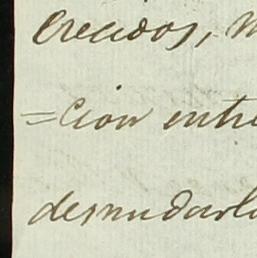 crecidos,
=cion entre
desnudarlo